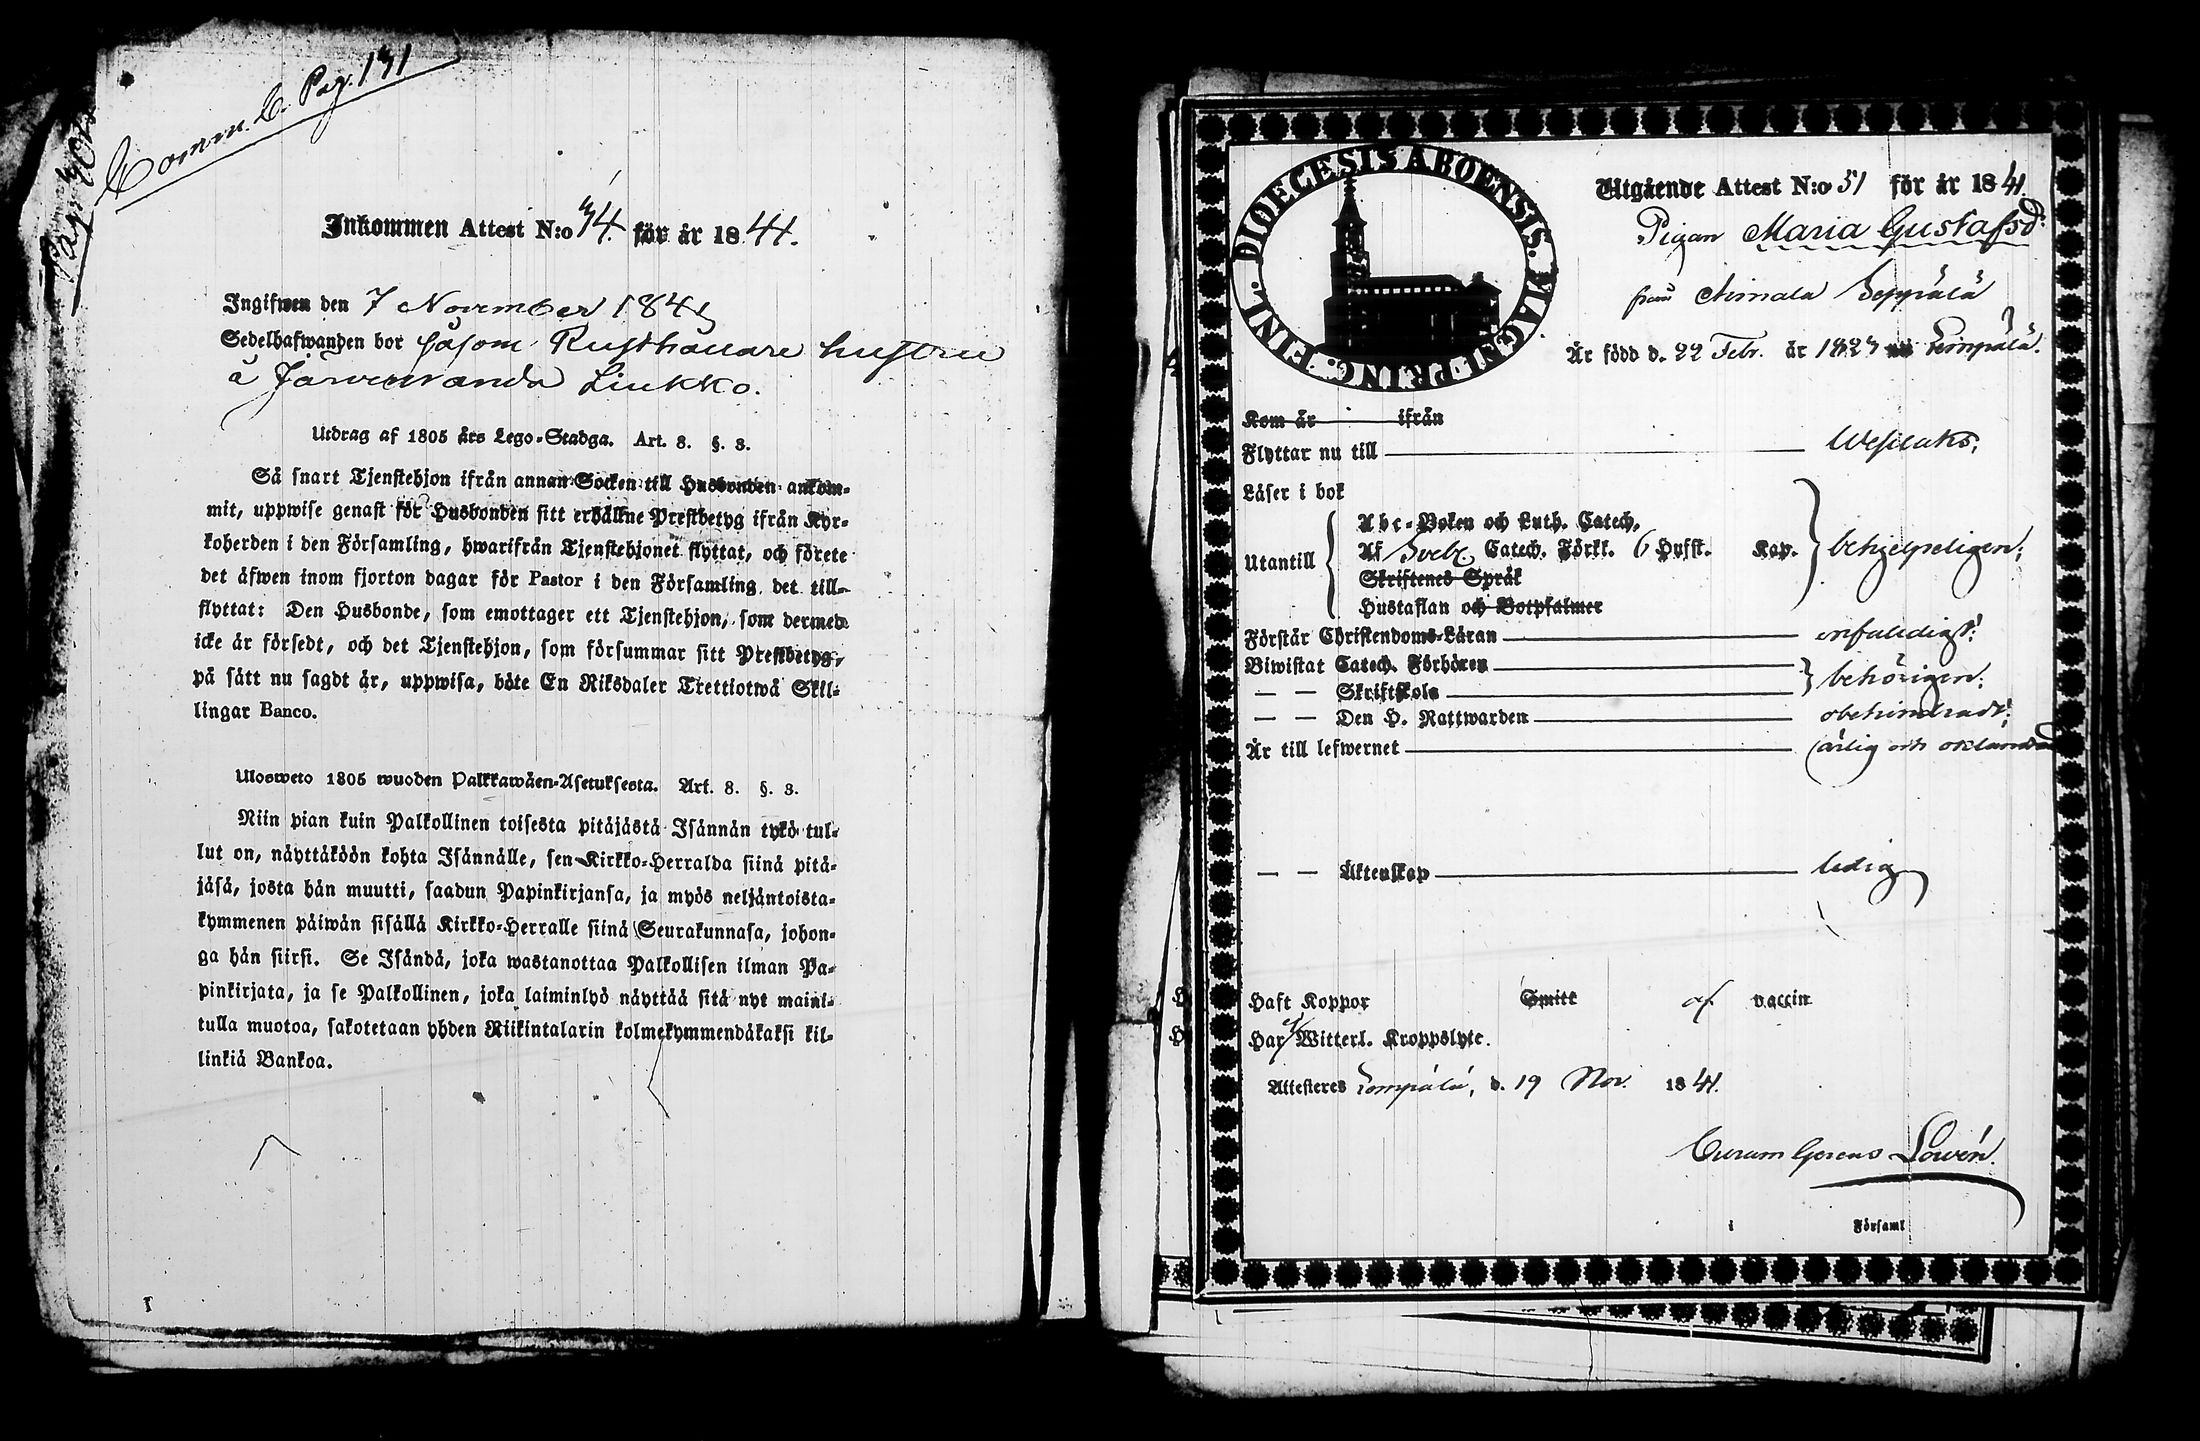 Comm. C. Pag. 131
Inkommen Attest N:o 34. för år 1841.
Ingifwen den 7 November 1841
Sedelhafwanden bor såsom Rusthållare hustru
å Järvenranda Liukko.
Utdrag af 1805 års Lego-Stadga. Art. 8. §. 3.
Så snart Tjenstehjon ifrån annan Socken till Husbonden ankom-
mit, uppwise genast för Husbonden sitt erhållne Prestbetyg ifrån Kyr-
koherden i den Församling, hwarifrån Tjenstehjonet flyttat, och förete
det äfwen inom fjorton dagar för Pastor i den Församling det till-
flyttat: Den Husbonde, som emottager ett Tjenstehjon, som dermed
icke är försedt, och det Tjenstehjon, som försummar sitt Prestbetyg,
på sätt nu sagdt är, uppwisa, böte En Riksdaler Trettiotwå Skil-
lingar Banco.
Ulosweto 1805 wuoden Palkkawäen-Asetuksesta. Art. 8. §. 3.
Niin pian kuin Palkollinen toisesta pitäjästä Isännän tykö tul-
lut on, näyttäköön kohta Isännälle, sen Kirkko-Herralda siinä pitä-
jäsä, josta hän muutti, saadun Papinkirjansa, ja myös neljäntoista-
kymmenen päiwän sisällä Kirkko-Herralle siinä Seurakunnasa, johon-
ga hän siirsi. Se Isändä, joka wastanottaa Palkollisen ilman Pa-
pinkirjata, ja se Palkollinen, joka laiminlyö näyttää sitä nyt maini-
tulla muotoa, sakotetaan yhden Riikintalarin kolmekymmendäkaksi kil-
linkiä Bankoa.
DIOECESIS ABOENSIS. MAGNI PRINC. FINL.
Utgående Attest N:o 51 för år 1841.
Pigan Maria Gustafsd.
från Aimala Seppälä
Är född d. 22 Febr. år 1823 Lempälä.
Kom år ifrån
Flyttar nu till Wesilaks.
Läser i bok
Utantill
Abc-Boken och Luth. Catech.
Af Sveb. Catech. Förkl. 6 Hufst. Kap. behjelpeligen;
Skriftenes Språk
Hustaflan och Botpsalmer
Förstår Christendoms-Läran enfaldigt;
Biwistat Catech. Förhören behörigen;
— — Skriftskola
— — Den H. Nattwarden obehindradt;
Är till lefwernet ärlig och oklandrad
— — Äktenskap ledig
Haft Koppor Smitt af vaccin
Har ej Witterl. Kroppslyte.
Attesteres Lempälä, d. 19 Nov. 1841.
Curam Gerens Lowén.
i Församl